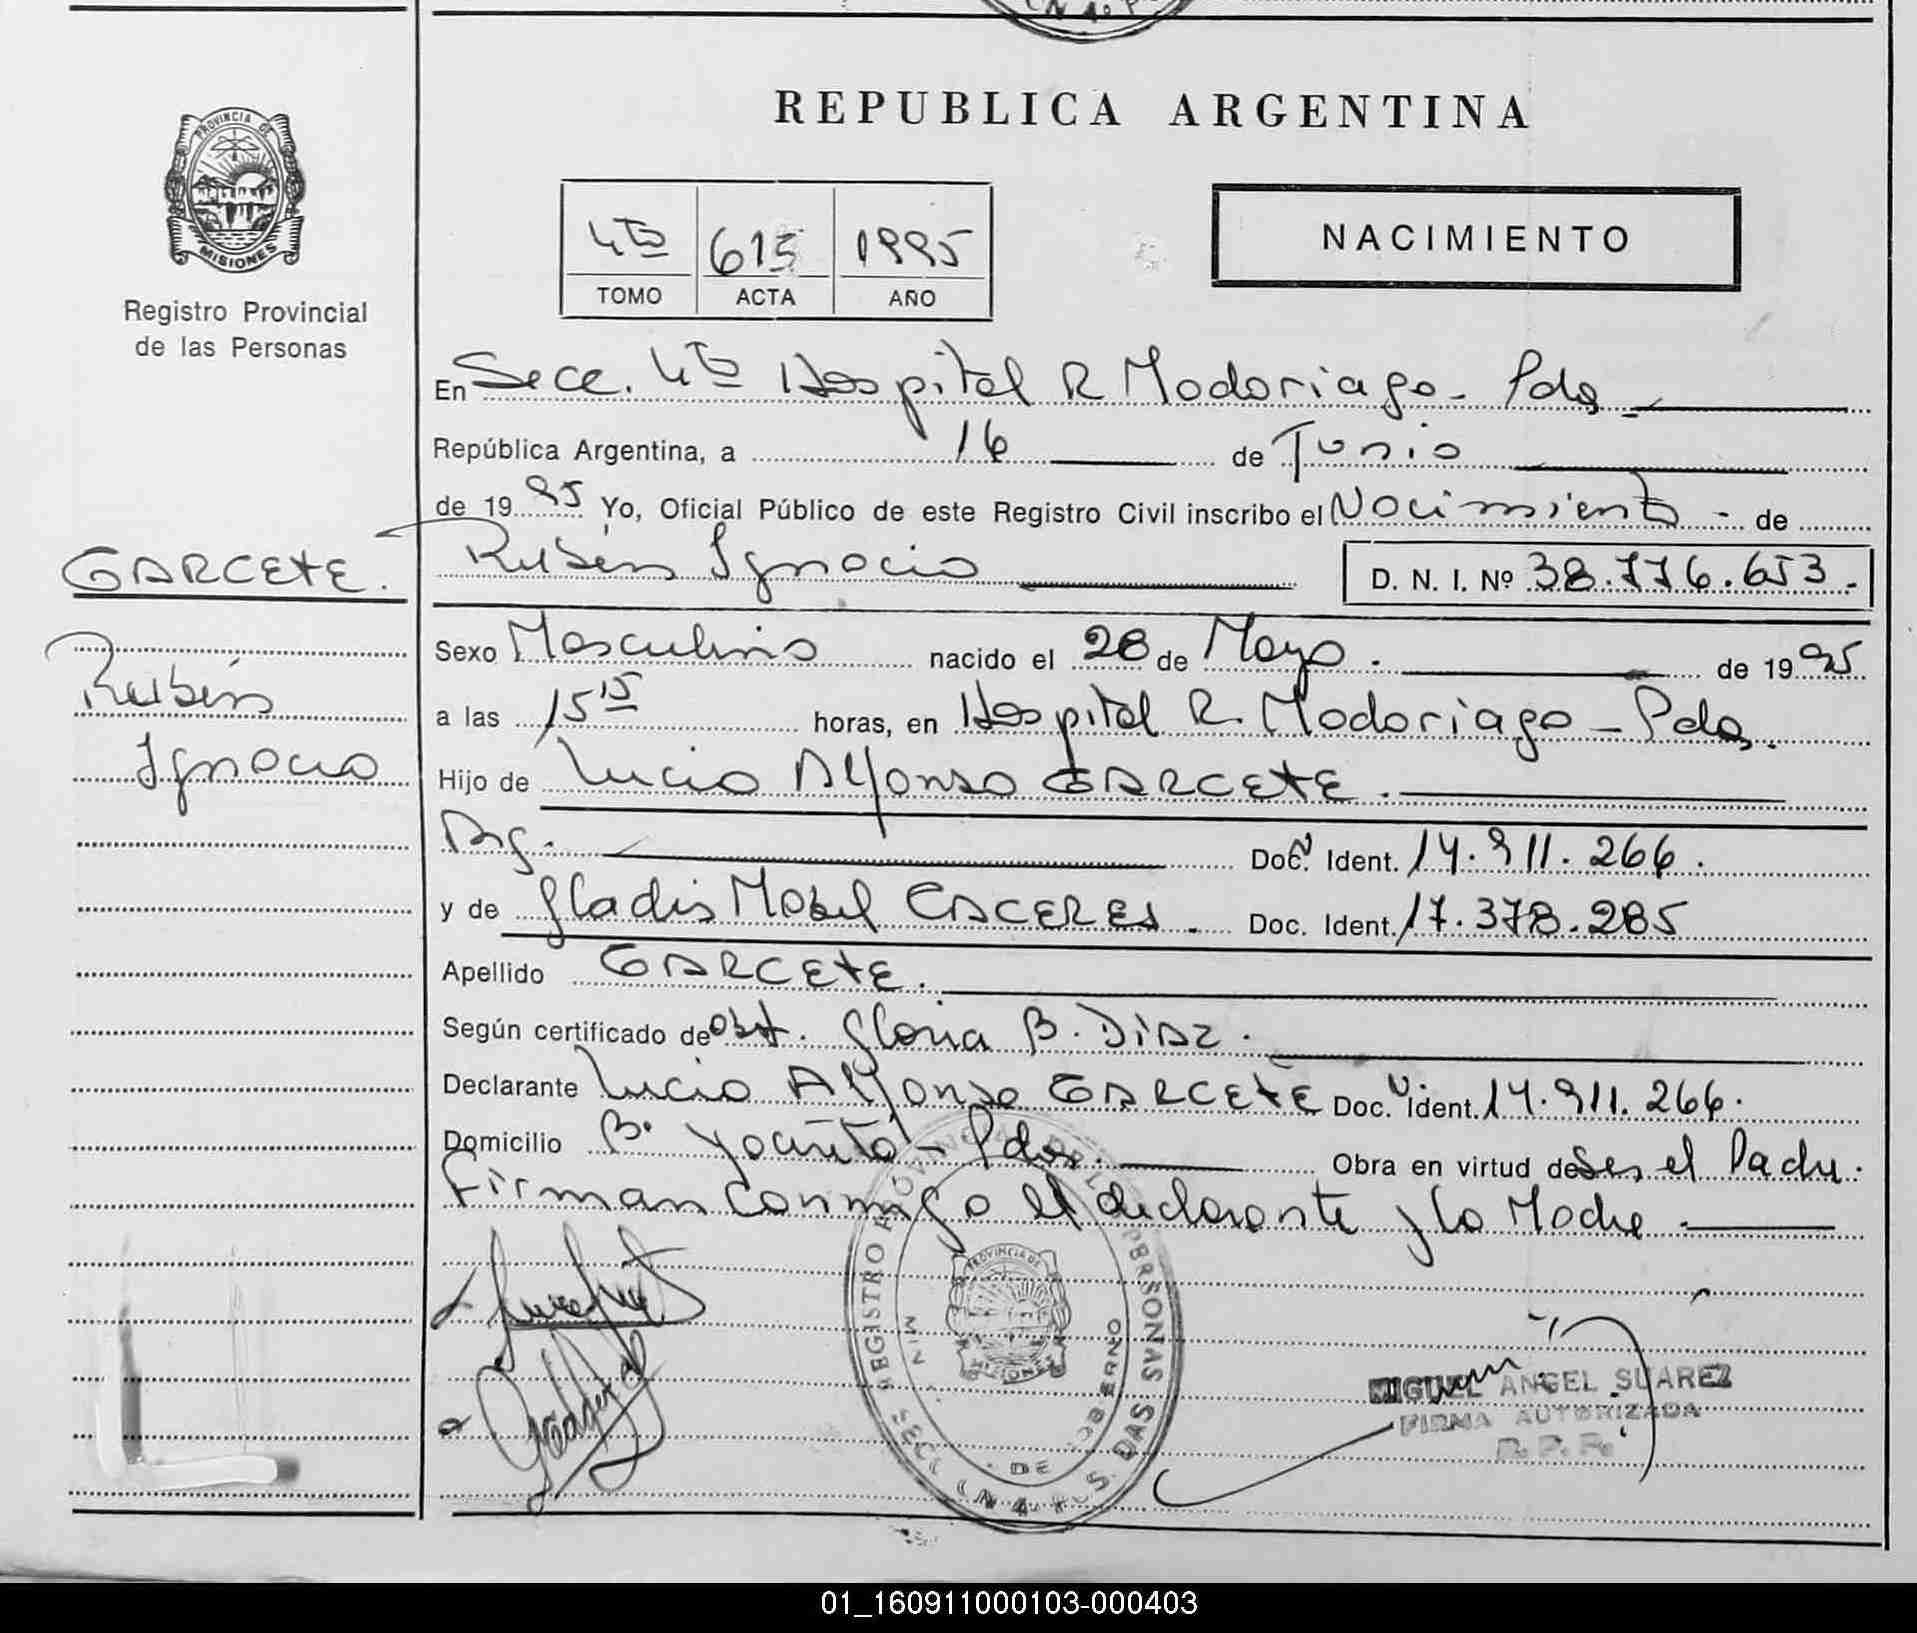 REPUBLICA ARGENTINA
PROVINCIA DE
MISIONES
Registro Provincial
de las Personas
4to 615 1995
TOMO ACTA AÑO
NACIMIENTO
En Secc. 4ta Hospital R Madariaga - Pdas
República Argentina, a 16 de Junio
de 1995 Yo, Oficial Público de este Registro Civil inscribo el Nacimiento - de
GARCETE.
Rubén Ignacio D. N. I. Nº 38.776.653.-
Rubén
Ignacio
Sexo Masculino nacido el 28 de Mayo. de 1995
a las 15 15 horas, en Hospital R. Madariaga - Pdas.
Hijo de Lucio Alfonso GARCETE.
Arg. Doc. Ident. 14.911.266.
y de Gladis Mabel CACERES. Doc. Ident. 17.378.285
Apellido GARCETE.
Según certificado de Obst. Gloria B. Diaz.
Declarante Lucio Alfonso GARCETE Doc. Ident. 14.911.266.
Domicilio Bº Yacutá - Pdas. Obra en virtud de Ser el Padre.
Firman conmigo el declarante y la Madre
REGISTRO PROVINCIAL DE LAS PERSONAS
PROVINCIA DE
MISIONES
MIN. DE GOBIERNO
MIGUEL ANGEL SUAREZ
FIRMA AUTORIZADA
R. P. P.
01_160911000103-000403